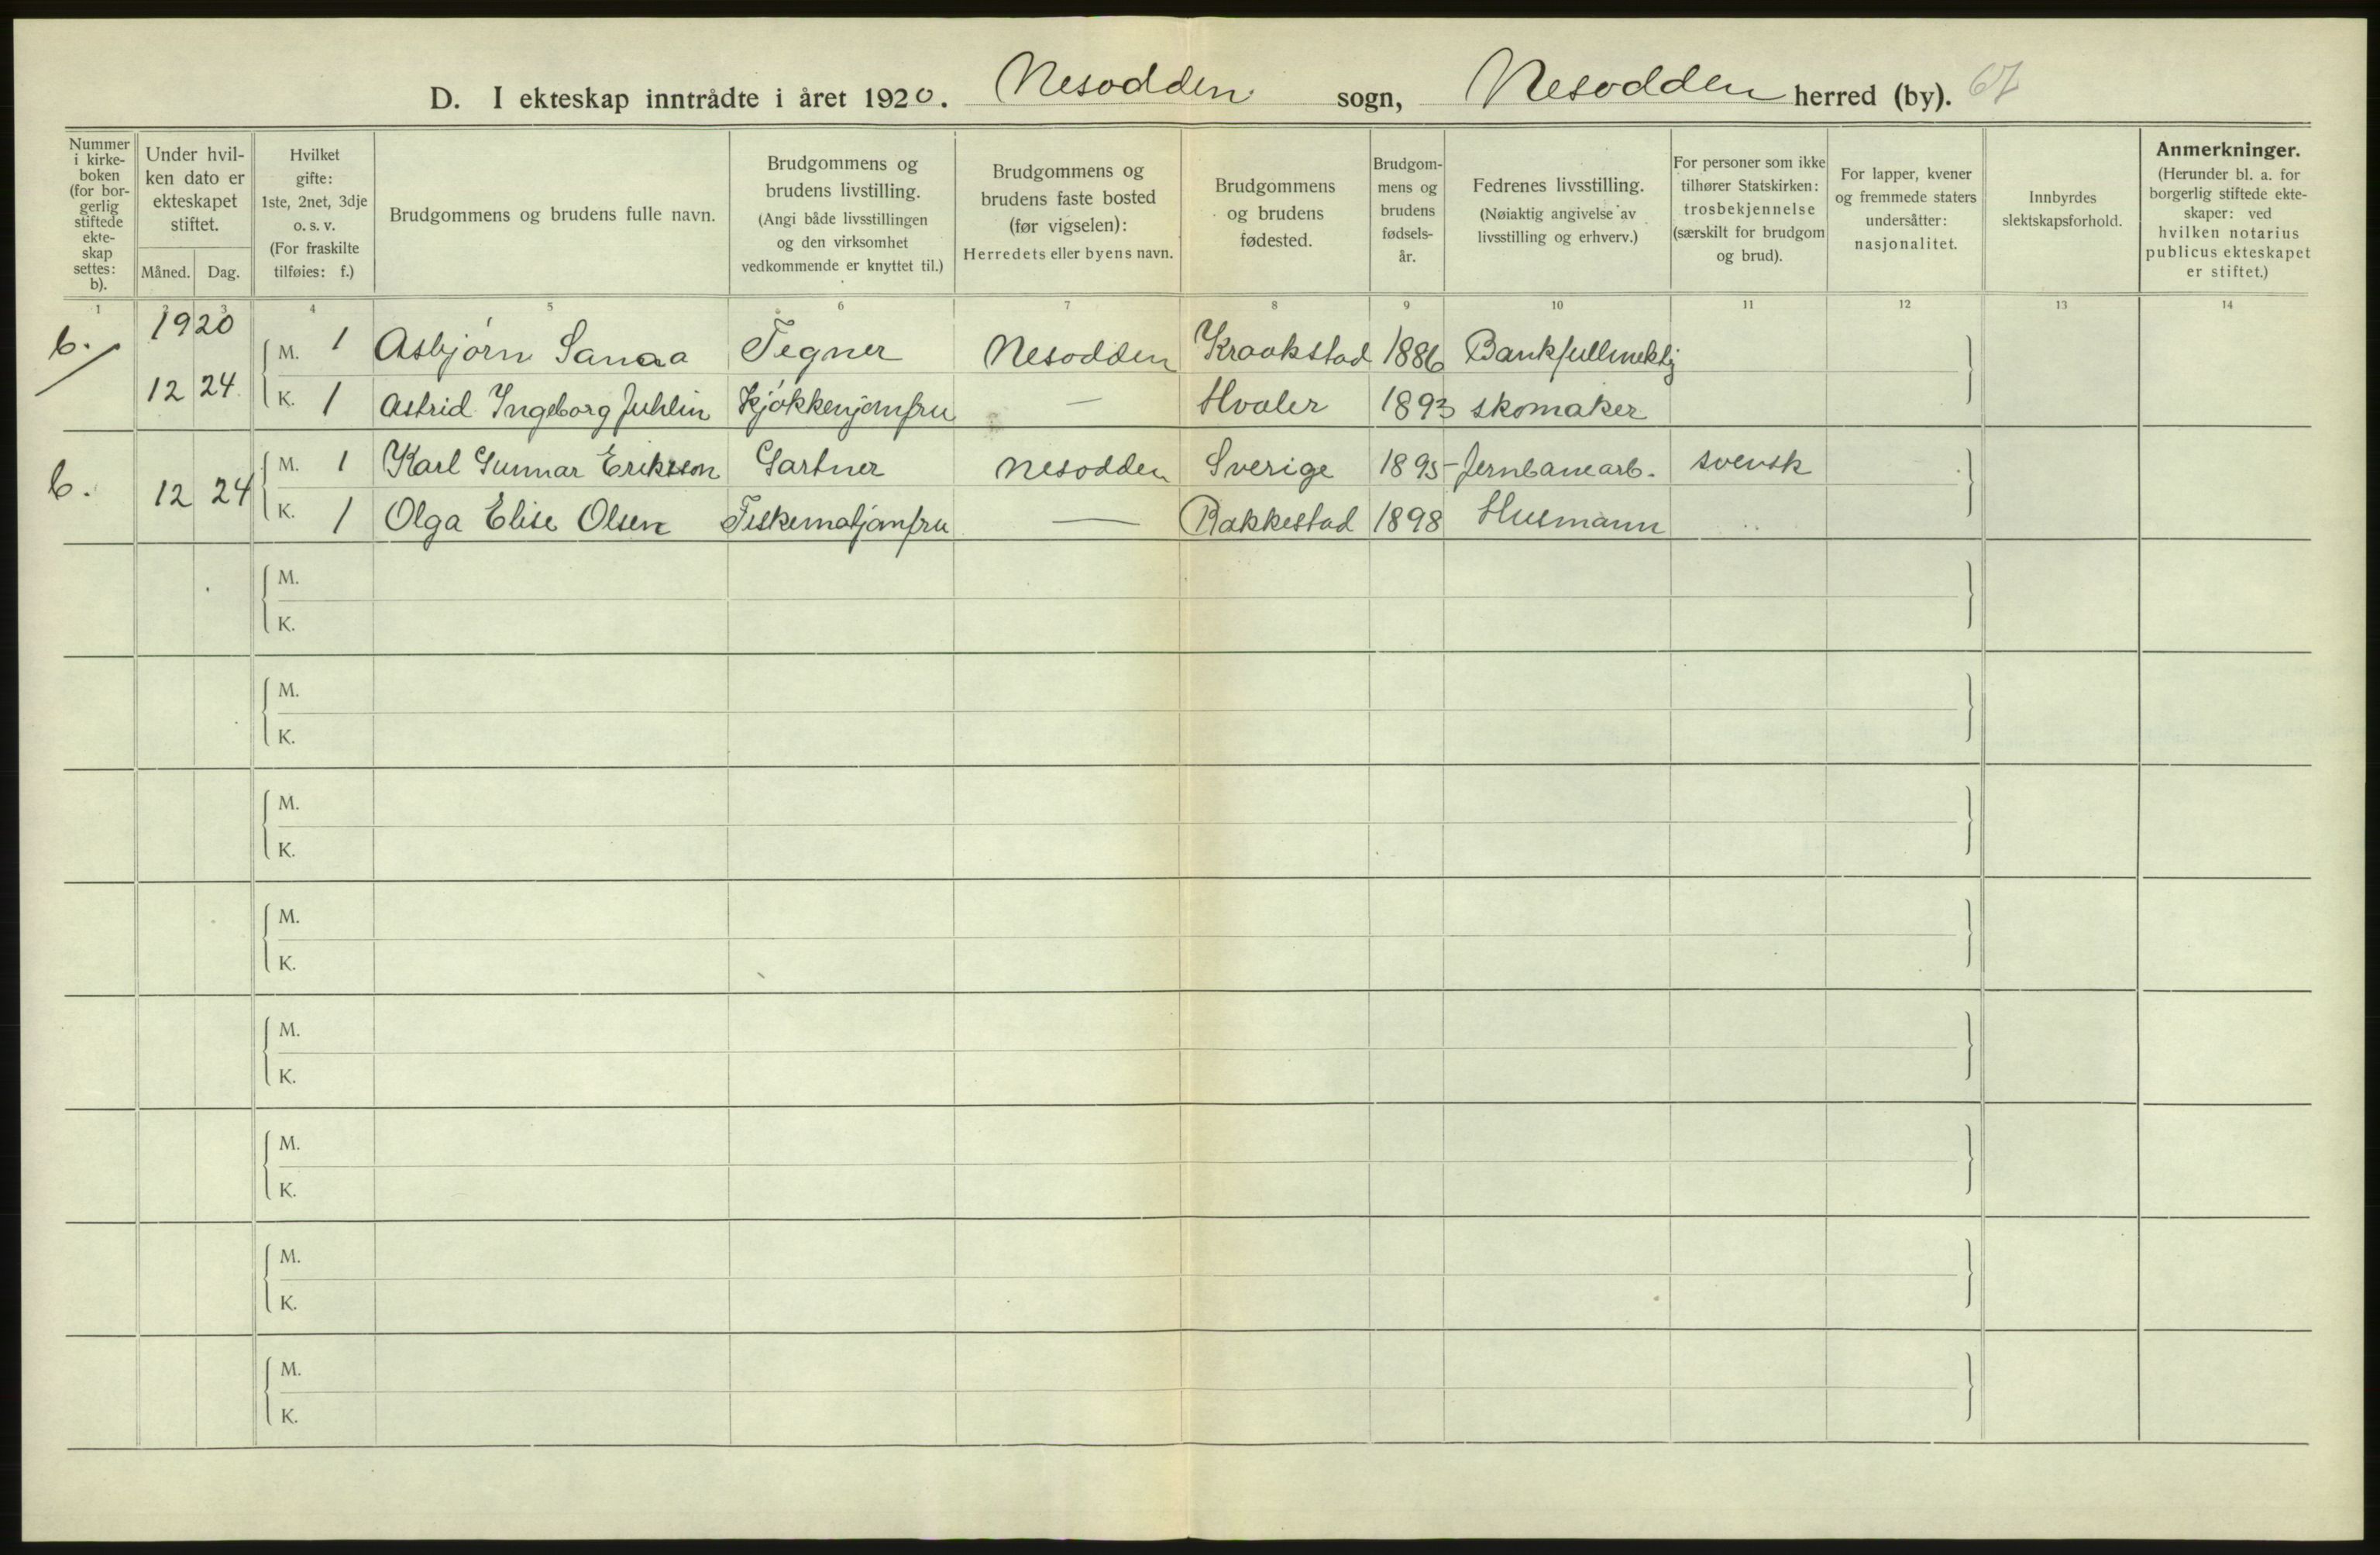 D. I ekteskap inntrådte i året 1920. Nesodden sogn, Nesodden herred (by). 67
Nummer i kirke-boken (for bor-gerlig stiftede ekte-skap settes: b).
Under hvil-ken dato er ekteskapet stiftet.
Måned. Dag.
Hvilket gifte: 1ste, 2net, 3dje o. s. v. (For fraskilte tilføies: f.)
Brudgommens og brudens fulle navn.
Brudgommens og brudens livstilling. (Angi både livsstillingen og den virksomhet vedkommende er knyttet til.)
Brudgommens og brudens faste bosted (før vigselen): Herredets eller byens navn.
Brudgommens og brudens fødested.
Brudgom-mens og brudens fødsels-år.
Fedrenes livsstilling. (Nøiaktig angivelse av livsstilling og erhverv.)
For personer som ikke tilhører Statskirken: trosbekjennelse (særskilt for brudgom og brud).
For lapper, kvener og fremmede staters undersåtter: nasjonalitet.
Innbyrdes slektskapsforhold.
Anmerkninger. (Herunder bl. a. for borgerlig stiftede ekte-skaper: ved hvilken notarius publicus ekteskapet er stiftet.)
1 2 3 4 5 6 7 8 9 10 11 12 13 14
1920
b. M. 1 Asbjørn Sanaa Tegner Nesodden Kraakstad 1886 Bankfullmektig
12 24 K. 1 Astrid Ingeborg Juhlin Kjøkkenjomfru — Hvaler 1893 skomaker
b. 12 24 M. 1 Karl Gunnar Eriksson Gartner Nesodden Sverige 1895 Jernbanearb. svensk
K. 1 Olga Elise Olsen Feskematjomfru — Rakkestad 1898 Husmann
M.
K.
M.
K.
M.
K.
M.
K.
M.
K.
M.
K.
M.
K.
M.
K.